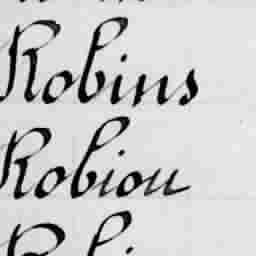 Robins
Robiou